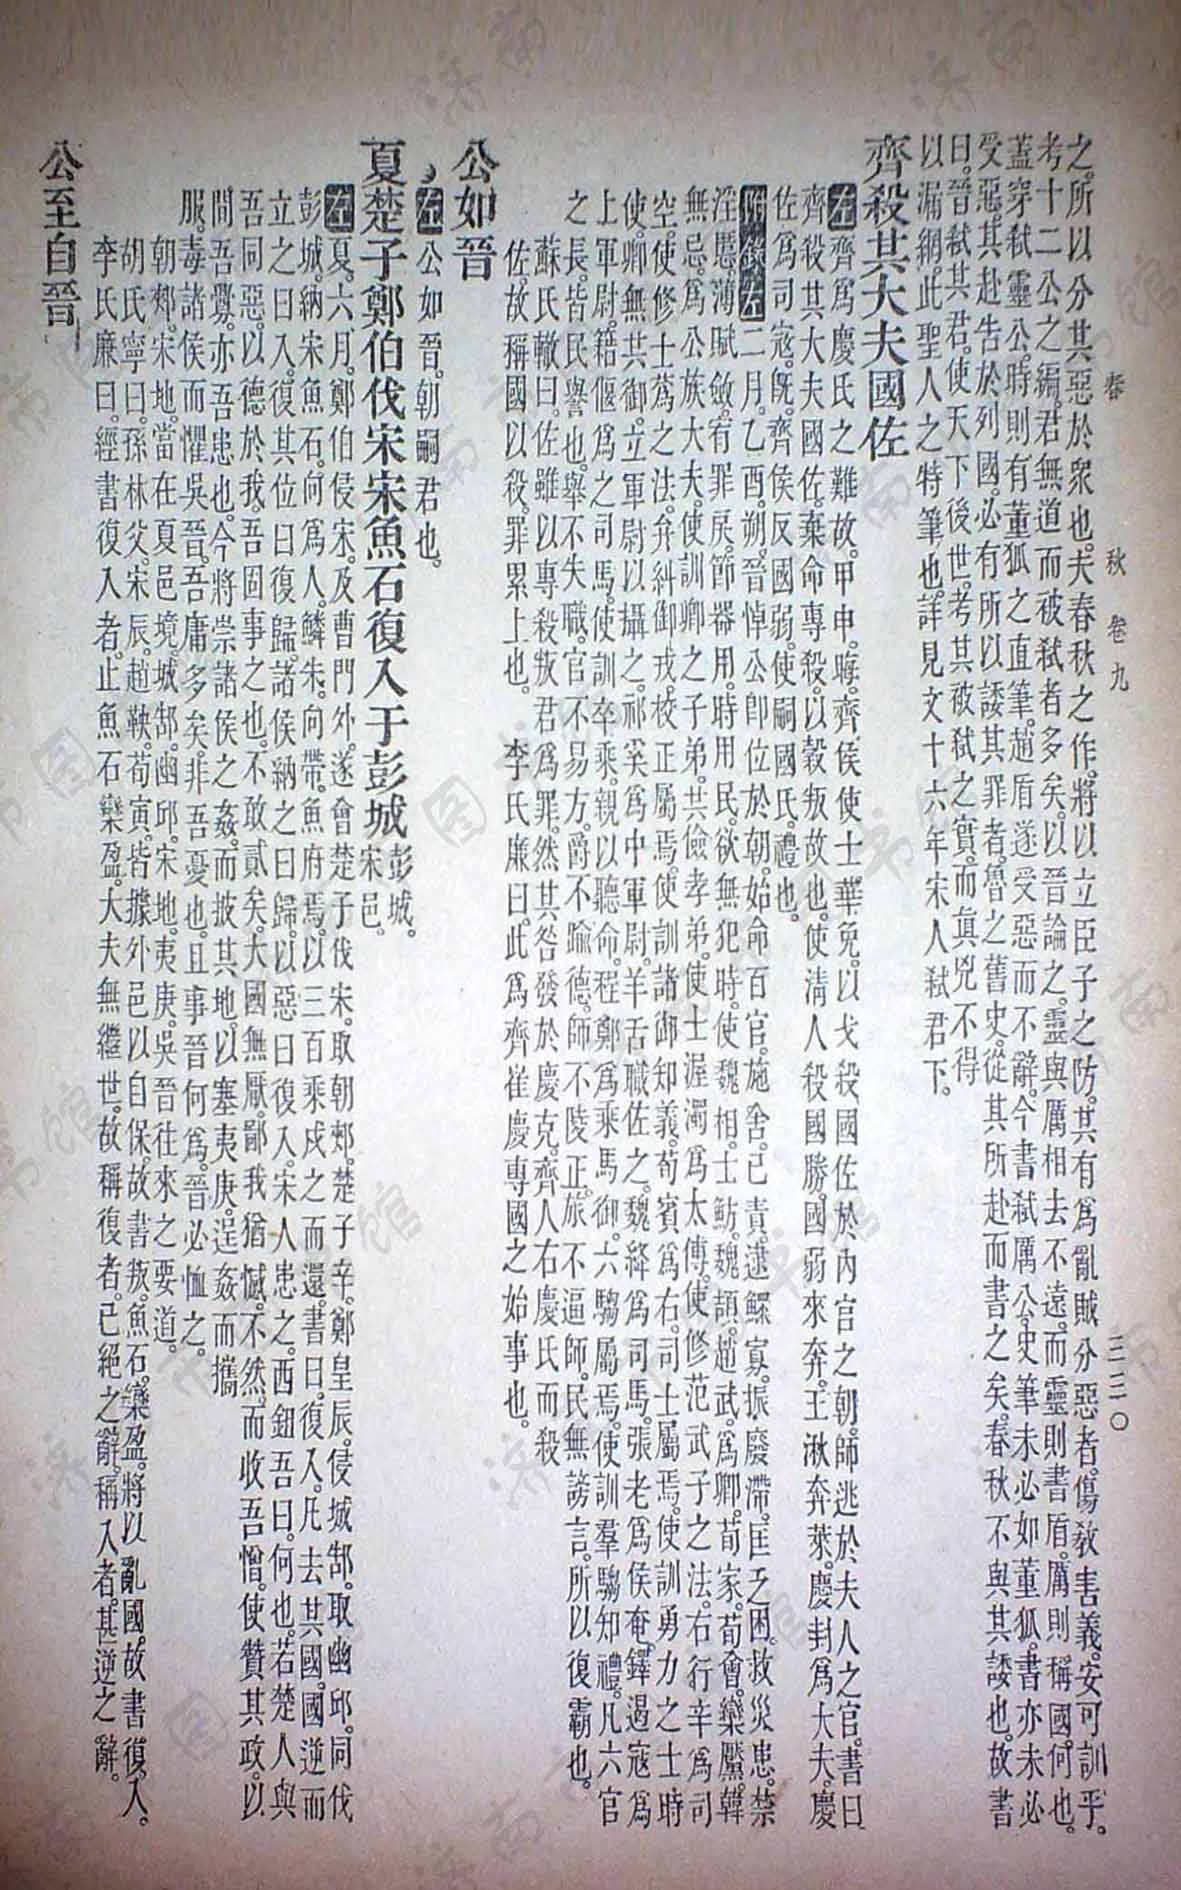 春　秋　卷九　三三〇
之。所以分其惡於衆也。夫春秋之作。將以立臣子之防。其有爲亂賊分惡者。傷敎害義。安可訓乎。
考十二公之編。君無道而被弑者多矣。以晉論之。靈與厲相去不遠。而靈則書盾。厲則稱國。何也。
蓋穿弑靈公。時則有董狐之直筆。趙盾遂受惡而不辭。今書弑厲公。史筆未必如董狐。書亦未必
受惡。其赴告於列國。必有所以諉其罪者。魯之舊史。從其所赴而書之矣。春秋不與其諉也。故書
曰。晉弑其君。使天下後世。考其被弑之實。而眞兇不得
以漏網。此聖人之特筆也。詳見文十六年宋人弑君下。
齊殺其大夫國佐
左 齊爲慶氏之難故。甲申。晦。齊侯使士華免。以戈殺國佐於內宮之朝。師逃於夫人之宮。書曰
齊殺其大夫國佐。棄命專殺。以穀叛故也。使淸人殺國勝。國弱來奔。王湫奔萊。慶封爲大夫。慶
佐爲司寇。旣。齊侯反國弱。使嗣國氏。禮也。
附錄左 二月。乙酉。朔。晉悼公卽位於朝。始命百官。施舍。已責。逮鰥寡。振廢滯。匡乏困。救災患。禁
淫慝。薄賦斂。宥罪戾。節器用。時用民。欲無犯時。使魏相。士魴。魏頡。趙武。爲卿。荀家。荀會。欒黶。韓
無忌。爲公族大夫。使訓卿之子弟。共儉孝弟。使士渥濁爲太傅。使修范武子之法。右行辛爲司
空。使修士蔿之法。弁糾御戎。校正屬焉。使訓諸御知義。荀賓爲右。司士屬焉。使訓勇力之士時
使。卿無共御。立軍尉以攝之。祁奚爲中軍尉。羊舌職佐之。魏絳爲司馬。張老爲侯奄。鐸遏寇爲
上軍尉。籍偃爲之司馬。使訓卒乘。親以聽命。程鄭爲乘馬御。六騶屬焉。使訓羣騶知禮。凡六官
之長。皆民譽也。舉不失職。官不易方。爵不踰德。師不陵正。旅不逼師。民無謗言。所以復霸也。
蘇氏轍曰。佐雖以專殺叛君爲罪。然其咎發於慶克。齊人右慶氏而殺
佐。故稱國以殺。罪累上也。　李氏廉曰。此爲齊崔慶專國之始事也。
公如晉
左 公如晉。朝嗣君也。
夏楚子鄭伯伐宋宋魚石復入于彭城 彭城。宋邑。
左 夏。六月。鄭伯侵宋。及曹門外。遂會楚子伐宋。取朝郟。楚子辛。鄭皇辰。侵城郜。取幽邱。同伐
彭城。納宋魚石。向爲人。鱗朱。向帶。魚府焉。以三百乘戍之而還。書曰。復入。凡去其國。國逆而
立之曰入。復其位曰復歸。諸侯納之曰歸。以惡曰復入。宋人患之。西鉏吾曰。何也。若楚人與
吾同惡。以德於我。吾固事之也。不敢貳矣。大國無厭。鄙我猶憾。不然。而收吾憎。使贊其政。以
間吾釁。亦吾患也。今將崇諸侯之姦。而披其地。以塞夷庚。逞姦而攜
服。毒諸侯而懼吳晉。吾庸多矣。非吾憂也。且事晉何爲。晉必恤之。
朝郟。宋地。當在夏邑境。城郜。幽邱。宋地。夷庚。吳晉往來之要道。
胡氏寧曰。孫林父。宋辰。趙鞅。荀寅。皆據外邑以自保。故書叛。魚石。欒盈。將以亂國。故書復入。
李氏廉曰。經書復入者。止魚石欒盈。大夫無繼世。故稱復者。已絕之辭。稱入者。甚逆之辭。
公至自晉